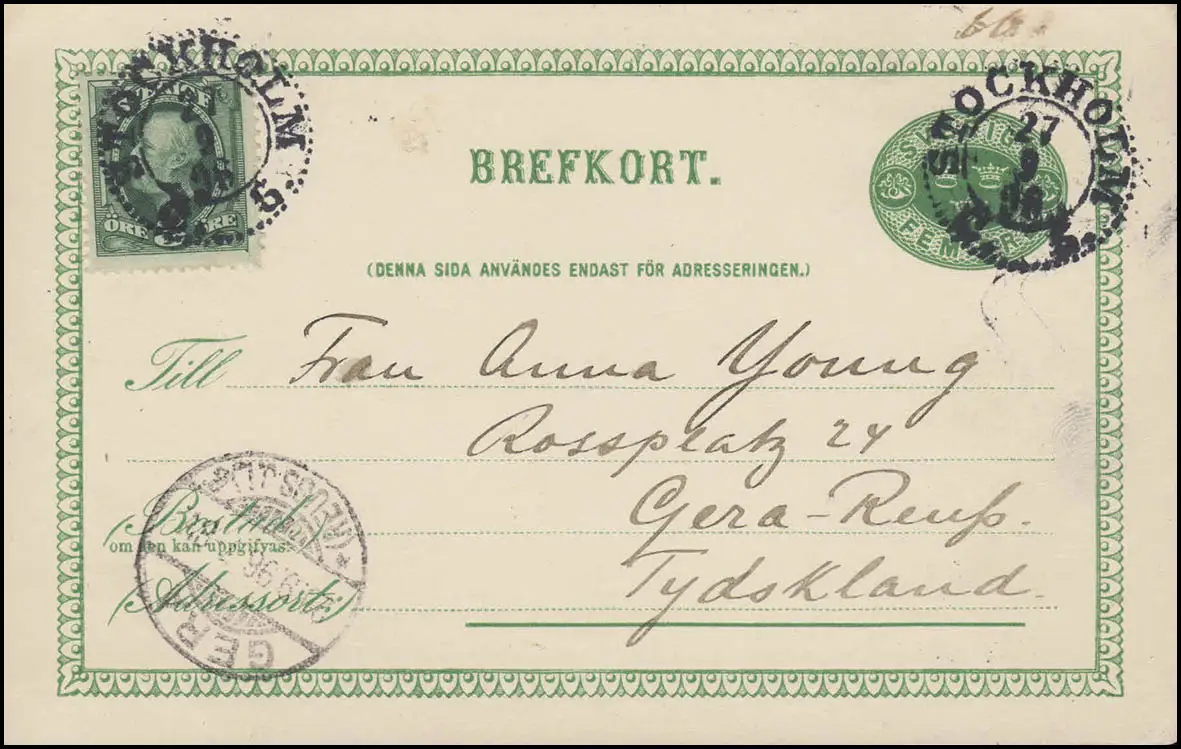 STOCKHOLM
5
SVERIGE
ÖRE 5 ÖRE
BREFKORT.
STOCKHOLM
27
9
96
FEM
(DENNA SIDA ANVÄNDES ENDAST FÖR ADRESSERINGEN.)
Till Frau Anna Young
Rossplatz 24
(Bostad,
om den kan uppgifvas:
Gera-Reuß.
(Adressort:)
Tydskland.
GERA
(REUSS J.L.)